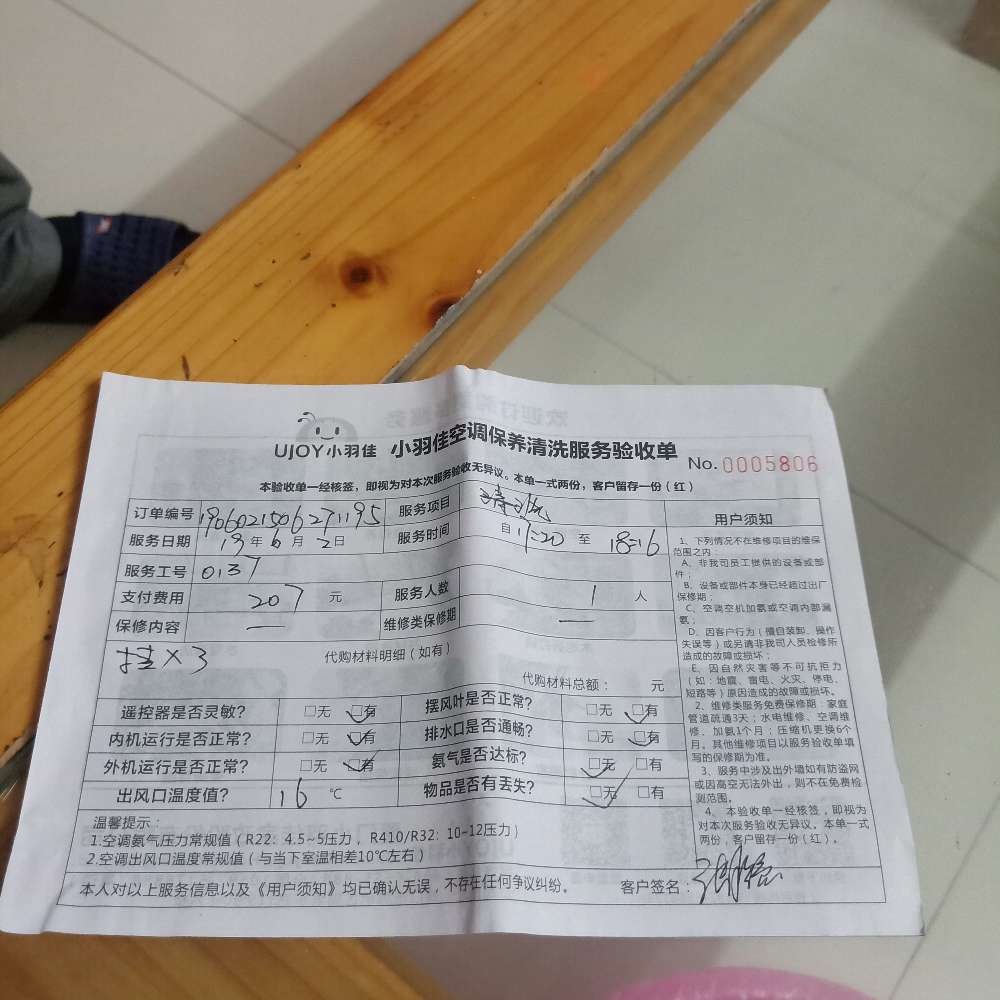 UJOY小羽佳 小羽佳空调保养清洗服务验收单 No.0005806
本验收单一经核签，即视为对本次服务验收无异议。本单一式两份，客户留存一份（红）
订单编号 1906021506271195 服务项目 清洗
服务日期 19年6月2日 服务时间 自17:20至18:16
服务工号 0137
支付费用 207 元 服务人数 1 人
保修内容 — 维修类保修期 —
挂×3 代购材料明细（如有）
代购材料总额： 元
遥控器是否灵敏？ □无 ☑有 摆风叶是否正常？ □无 ☑有
内机运行是否正常？ □无 ☑有 排水口是否通畅？ □无 ☑有
外机运行是否正常？ □无 ☑有 氨气是否达标？ ☑无 □有
出风口温度值？ 16 ℃ 物品是否有丢失？ ☑无 □有
温馨提示：
1.空调氨气压力常规值（R22: 4.5~5压力， R410/R32: 10~12压力）
2.空调出风口温度常规值（与当下室温相差10℃左右）
本人对以上服务信息以及《用户须知》均已确认无误，不存在任何争议纠纷。 客户签名：
用户须知
1、下列情况不在维修项目的维保
范围之内：
A、非我司员工提供的设备或部
件；
B、设备或部件本身已经超过出厂
保修期；
C、空调空机加氨或空调内部漏
氨；
D、因客户行为（擅自装卸、操作
失误等）或另请非我司人员检修所
造成的故障或损坏；
E、因自然灾害等不可抗拒力
（如：地震、雷电、火灾、停电、
短路等）原因造成的故障或损坏。
2、维修类服务免费保修期：家庭
管道疏通3天；水电维修、空调维
修、加氨1个月；压缩机更换6个
月。其他维修项目以服务验收单填
写的保修期为准。
3、服务中涉及出外墙如有防盗网
或因高空无法外出，则不在免费检
测范围。
4、本验收单一经核签，即视为
对本次服务验收无异议。本单一式
两份，客户留存一份（红）。